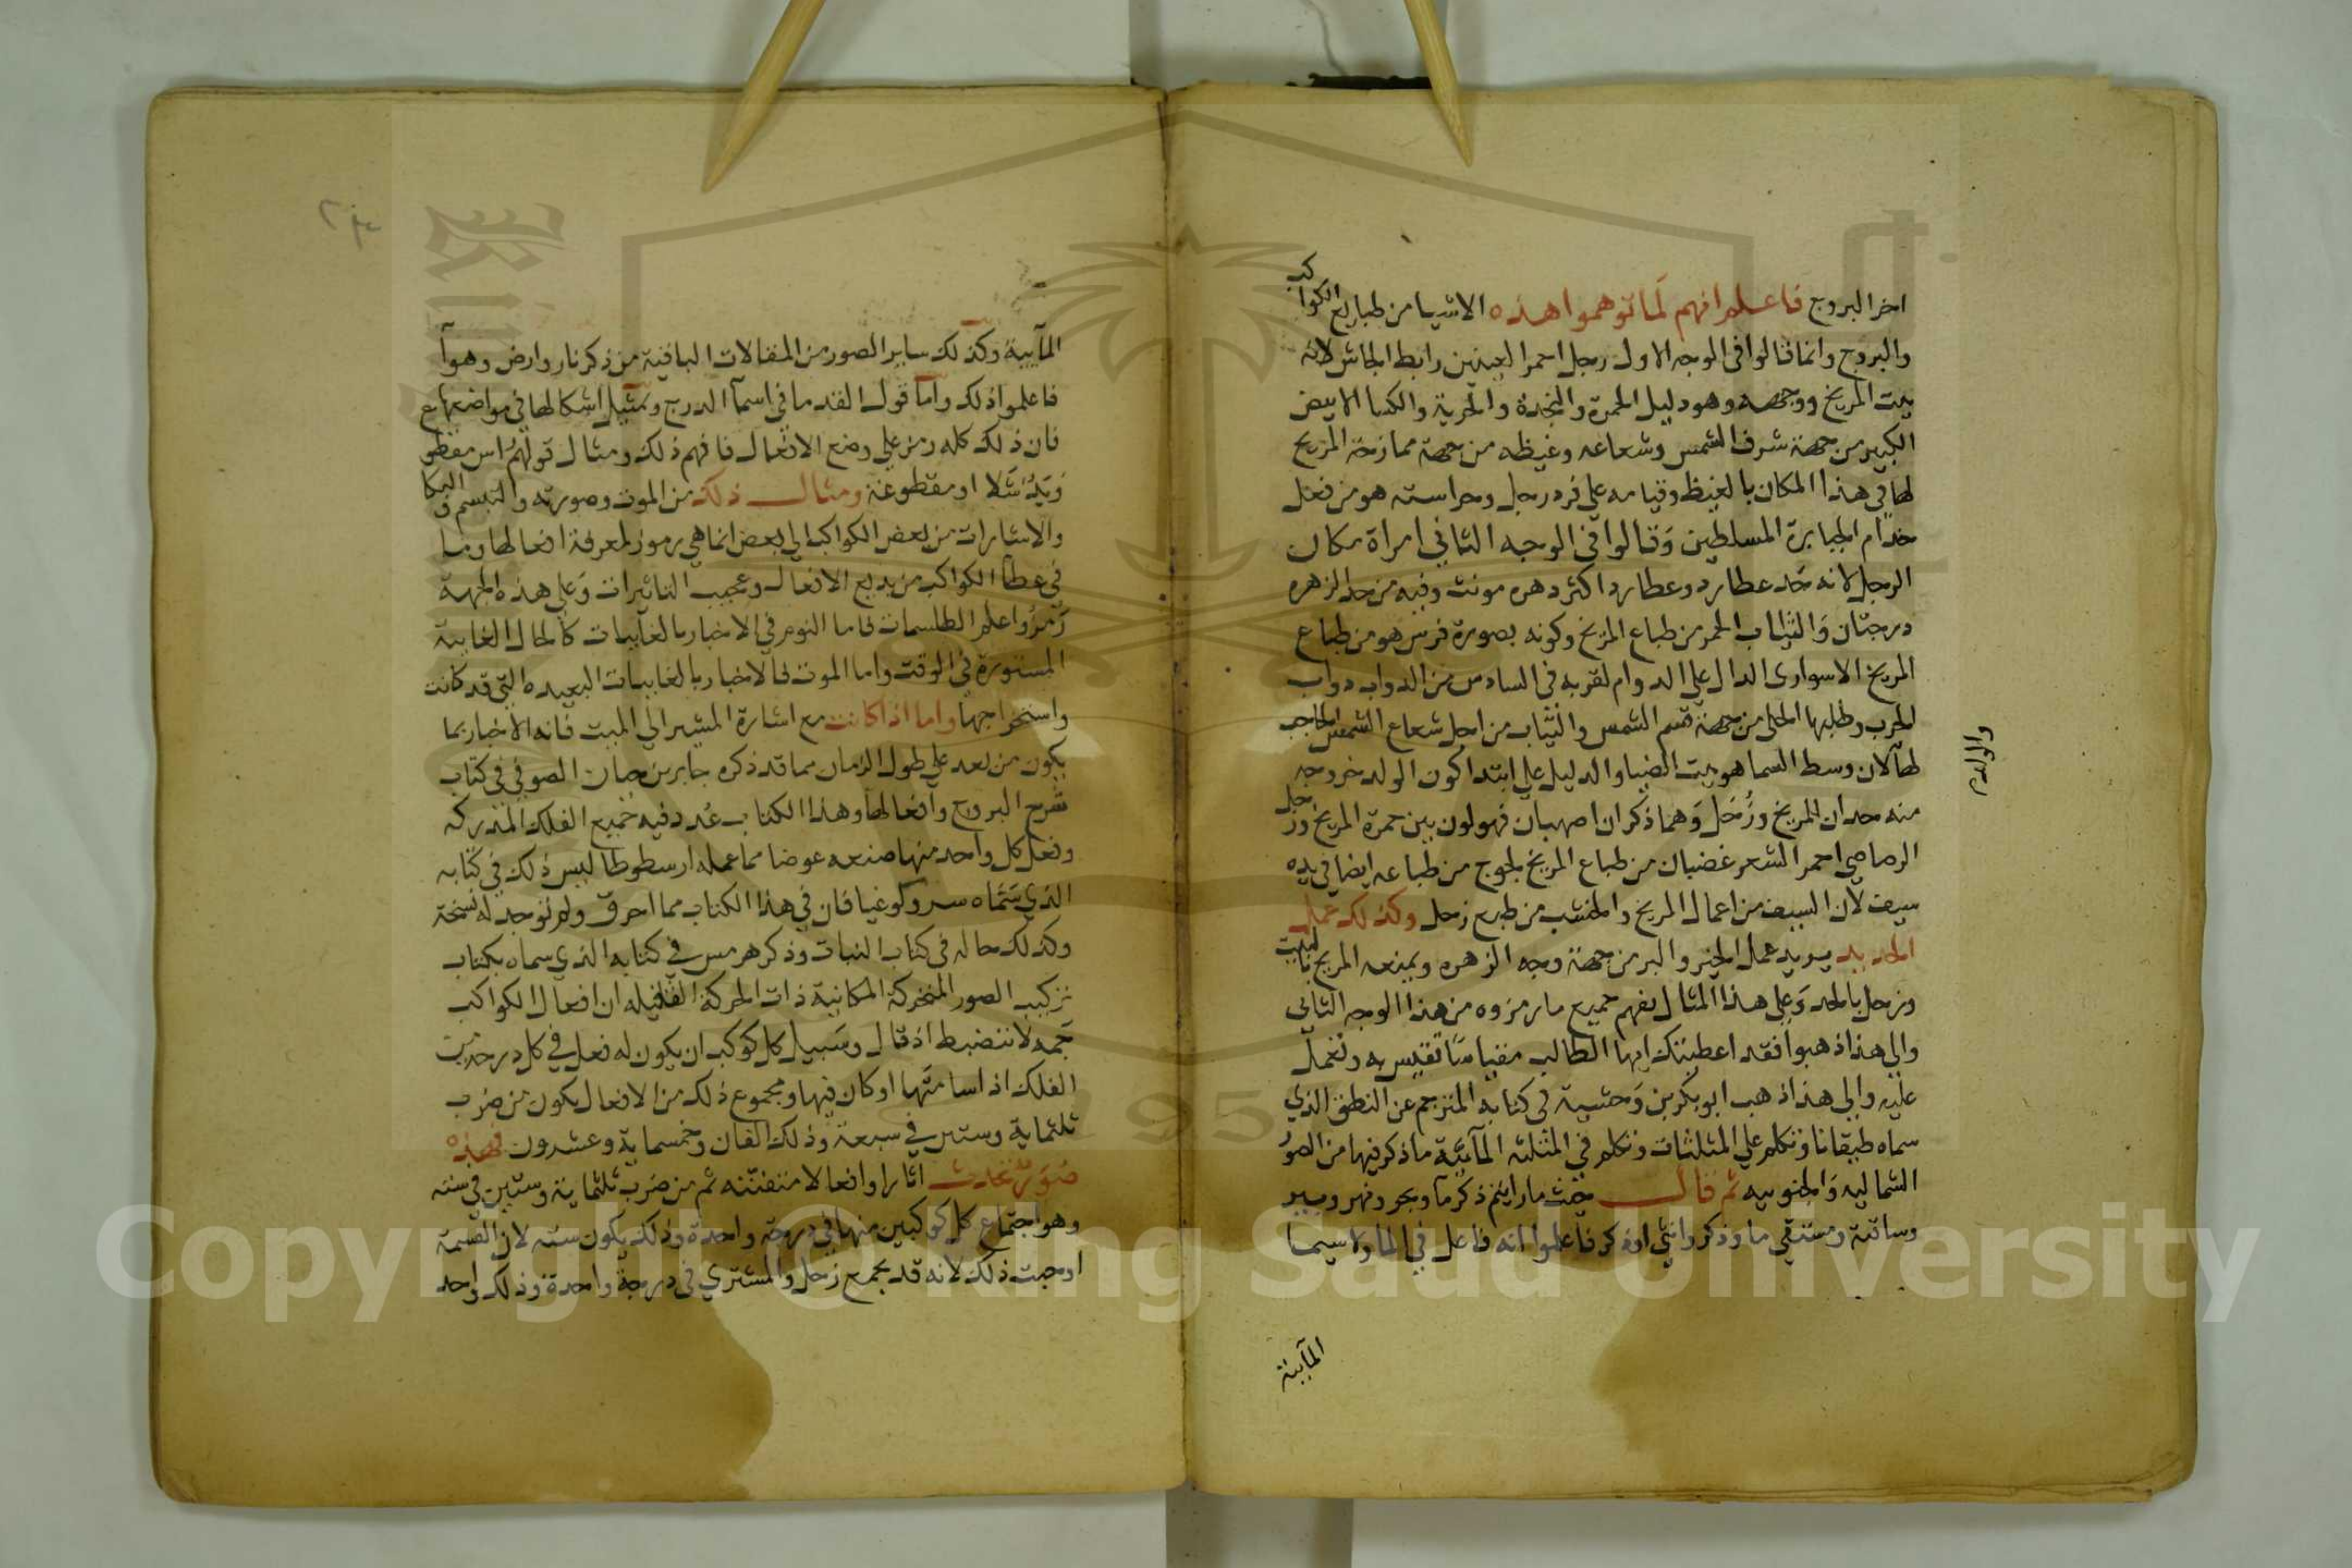 اخر البروج فاعلم انهم لما توهموا هذه الاشيا من طبايع الكواكب
والبروج وانما قالوا فى الوجه الاول رجل احمر العينين رابط الجاش لانه
بيت المريخ ووجهه وهو دليل الحمرة والنجدة والحرية والكسا الابيض
الكبير من جهة شرف الشمس وشعاعه وغيظه من جهة ممازحة المريخ
لها في هذا المكان بالغيظ وقيامه علي فرد رجل وحراسته هو من فعل
خدام الجبابرة المسلطين وقالوا فى الوجه الثاني امراة مكان
الرجل لانه حد عطارد وعطارد اكثر دهره مونث وفيه من حد الزهره
درجتان والثياب الحمر من طباع المريخ وكونه بصورة فرس هو من طباع
المريخ الاسوارى الدال علي الدوام لقربه فى السادس من الدواب دواب
الحرب وطلبها الحلى من جهة قسم الشمس والثياب من اجل شعاع الشمس الحاجب
لها لان وسط السما هو بيت الضيا والدليل علي ابتدا كون الولد خروجه
والولدم
منه حدان المريخ وزحل وهما ذكران اصهبان فهو لون بين حمرة المريخ وزحل
الرصاصي احمر الشعر غضبان من طباع المريخ لجوج من طباعه ايضا في يده
سيف لان السيف من اعمال المريخ والخشب من طبع زحل وكذلك عمل
الحديد يريد عمل الخير والبر من جهة وجه الزهره ويمنعه المريخ بالبيت
وزحل بالحد وعلي هذا المثال يفهم جميع ما رمزوه من هذا الوجه الثاني
والي هذا ذهبوا فقد اعطيتك ايها الطالب مقياسا تقيس به وتعمل
عليه والي هذا ذهب ابو بكر بن وحشية فى كتابه المترجم عن النطق الذي
سماه طبقانا وتكلم علي المثلثات وتكلم في المثلثه المآئية ما ذكر فيها من الصور
الشماليه والجنوبيه ثم قال حيث ما رايتم ذكر ما وبحر ونهر وبير
وساقية ومستقي ما وذكر وانثي او ذكر فاعلموا انه فاعل في الما ولا سيما
المآيية
المآيية وكذلك ساير الصور من المقالات الباقية من ذكر نار وارض وهوآ
فاعلموا ذلك واما قول القدما في اسمآ الدرج وتمثيل اشكالها في مواضعها
فان ذلك كله رمز علي وضع الافعال فافهم ذلك ومثال قولهم راس مقطوع
ويد شلا او مقطوعة ومثال ذلك من الموت وصورته والتبسم والبكا
والاشارات من بعض الكواكب الي بعض انما هي رموز لمعرفة افعالها وما
في عطآ الكواكب من بديع الافعال وعجيب التاثيرات وعلي هذه الجهة
رمزوا علم الطلسمات فاما النوم في الاخبار بالغايبات كالحال الغايبة
المستورة في الوقت واما الموت فالاخبار بالغايبات البعيده التي قد كانت
واستخراجها واما اذا كانت مع اشارة المشير الي الميت فانه الاخبار بما
يكون من بعد علي طول الزمان مما قد ذكره جابر بن حيان الصوفي في كتاب
شرح البروج وافعالها وهذا الكتاب عدد فيه جميع الفلك المتدركه
وفعل كل واحد منها صنعه عوضا مما عمله ارسطوطاليس ذلك في كتابه
الذي سماه سروكوغيا فان في هذا الكتاب مما احرق ولم توجد له نسخة
وكذلك حاله فى كتاب النبات وذكر هرمس في كتابه الذي سماه بكتاب
تركيب الصور المتحركة المكانية ذات الحركة الثقيله ان افعال الكواكب
جمه لا تنضبط اذ قال وسبيل كل كوكب ان يكون له فعل في كل درجة من
الفلك اذا سامتها او كان فيها ومجموع ذلك من الافعال يكون من ضرب
ثلثماية وستين في سبعة وذلك الفان وخمسماية وعشرون فهذه
صور تحدث اثارا وافعالا متفننه ثم من ضرب ثلثماية وستين في سته
وهو اجتماع كل كوكبين منها في درجة واحدة وذلك يكون سته لان القسمة
اوجبت ذلك لانه قد يجمع زحل والمشتري فى درجة واحدة وذلك واحد